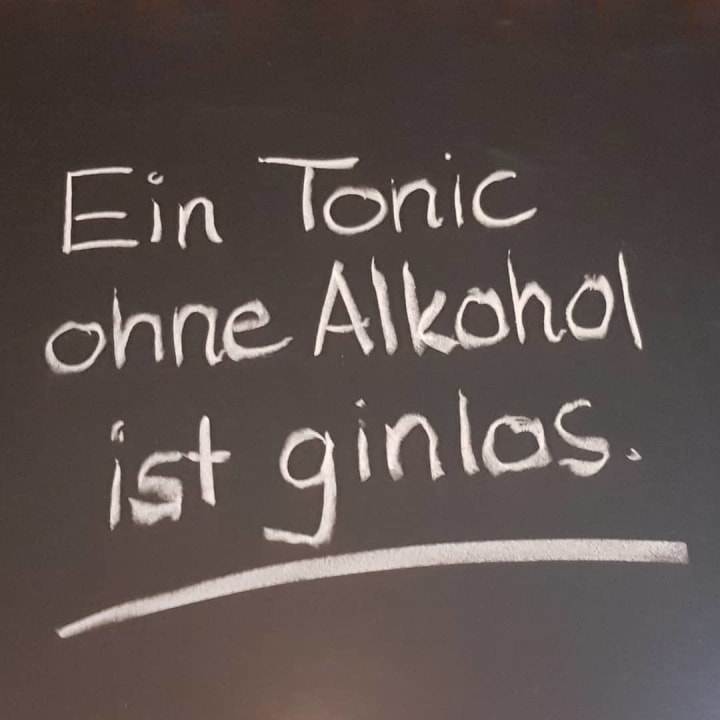 Ein Tonic
ohne Alkohol
ist ginlos.